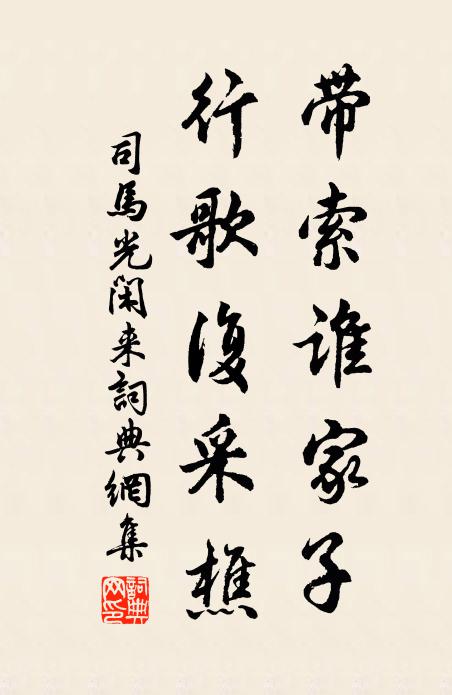 帶索誰家子
行歌復采樵
司馬光閑来詞典網集
詞典
网印